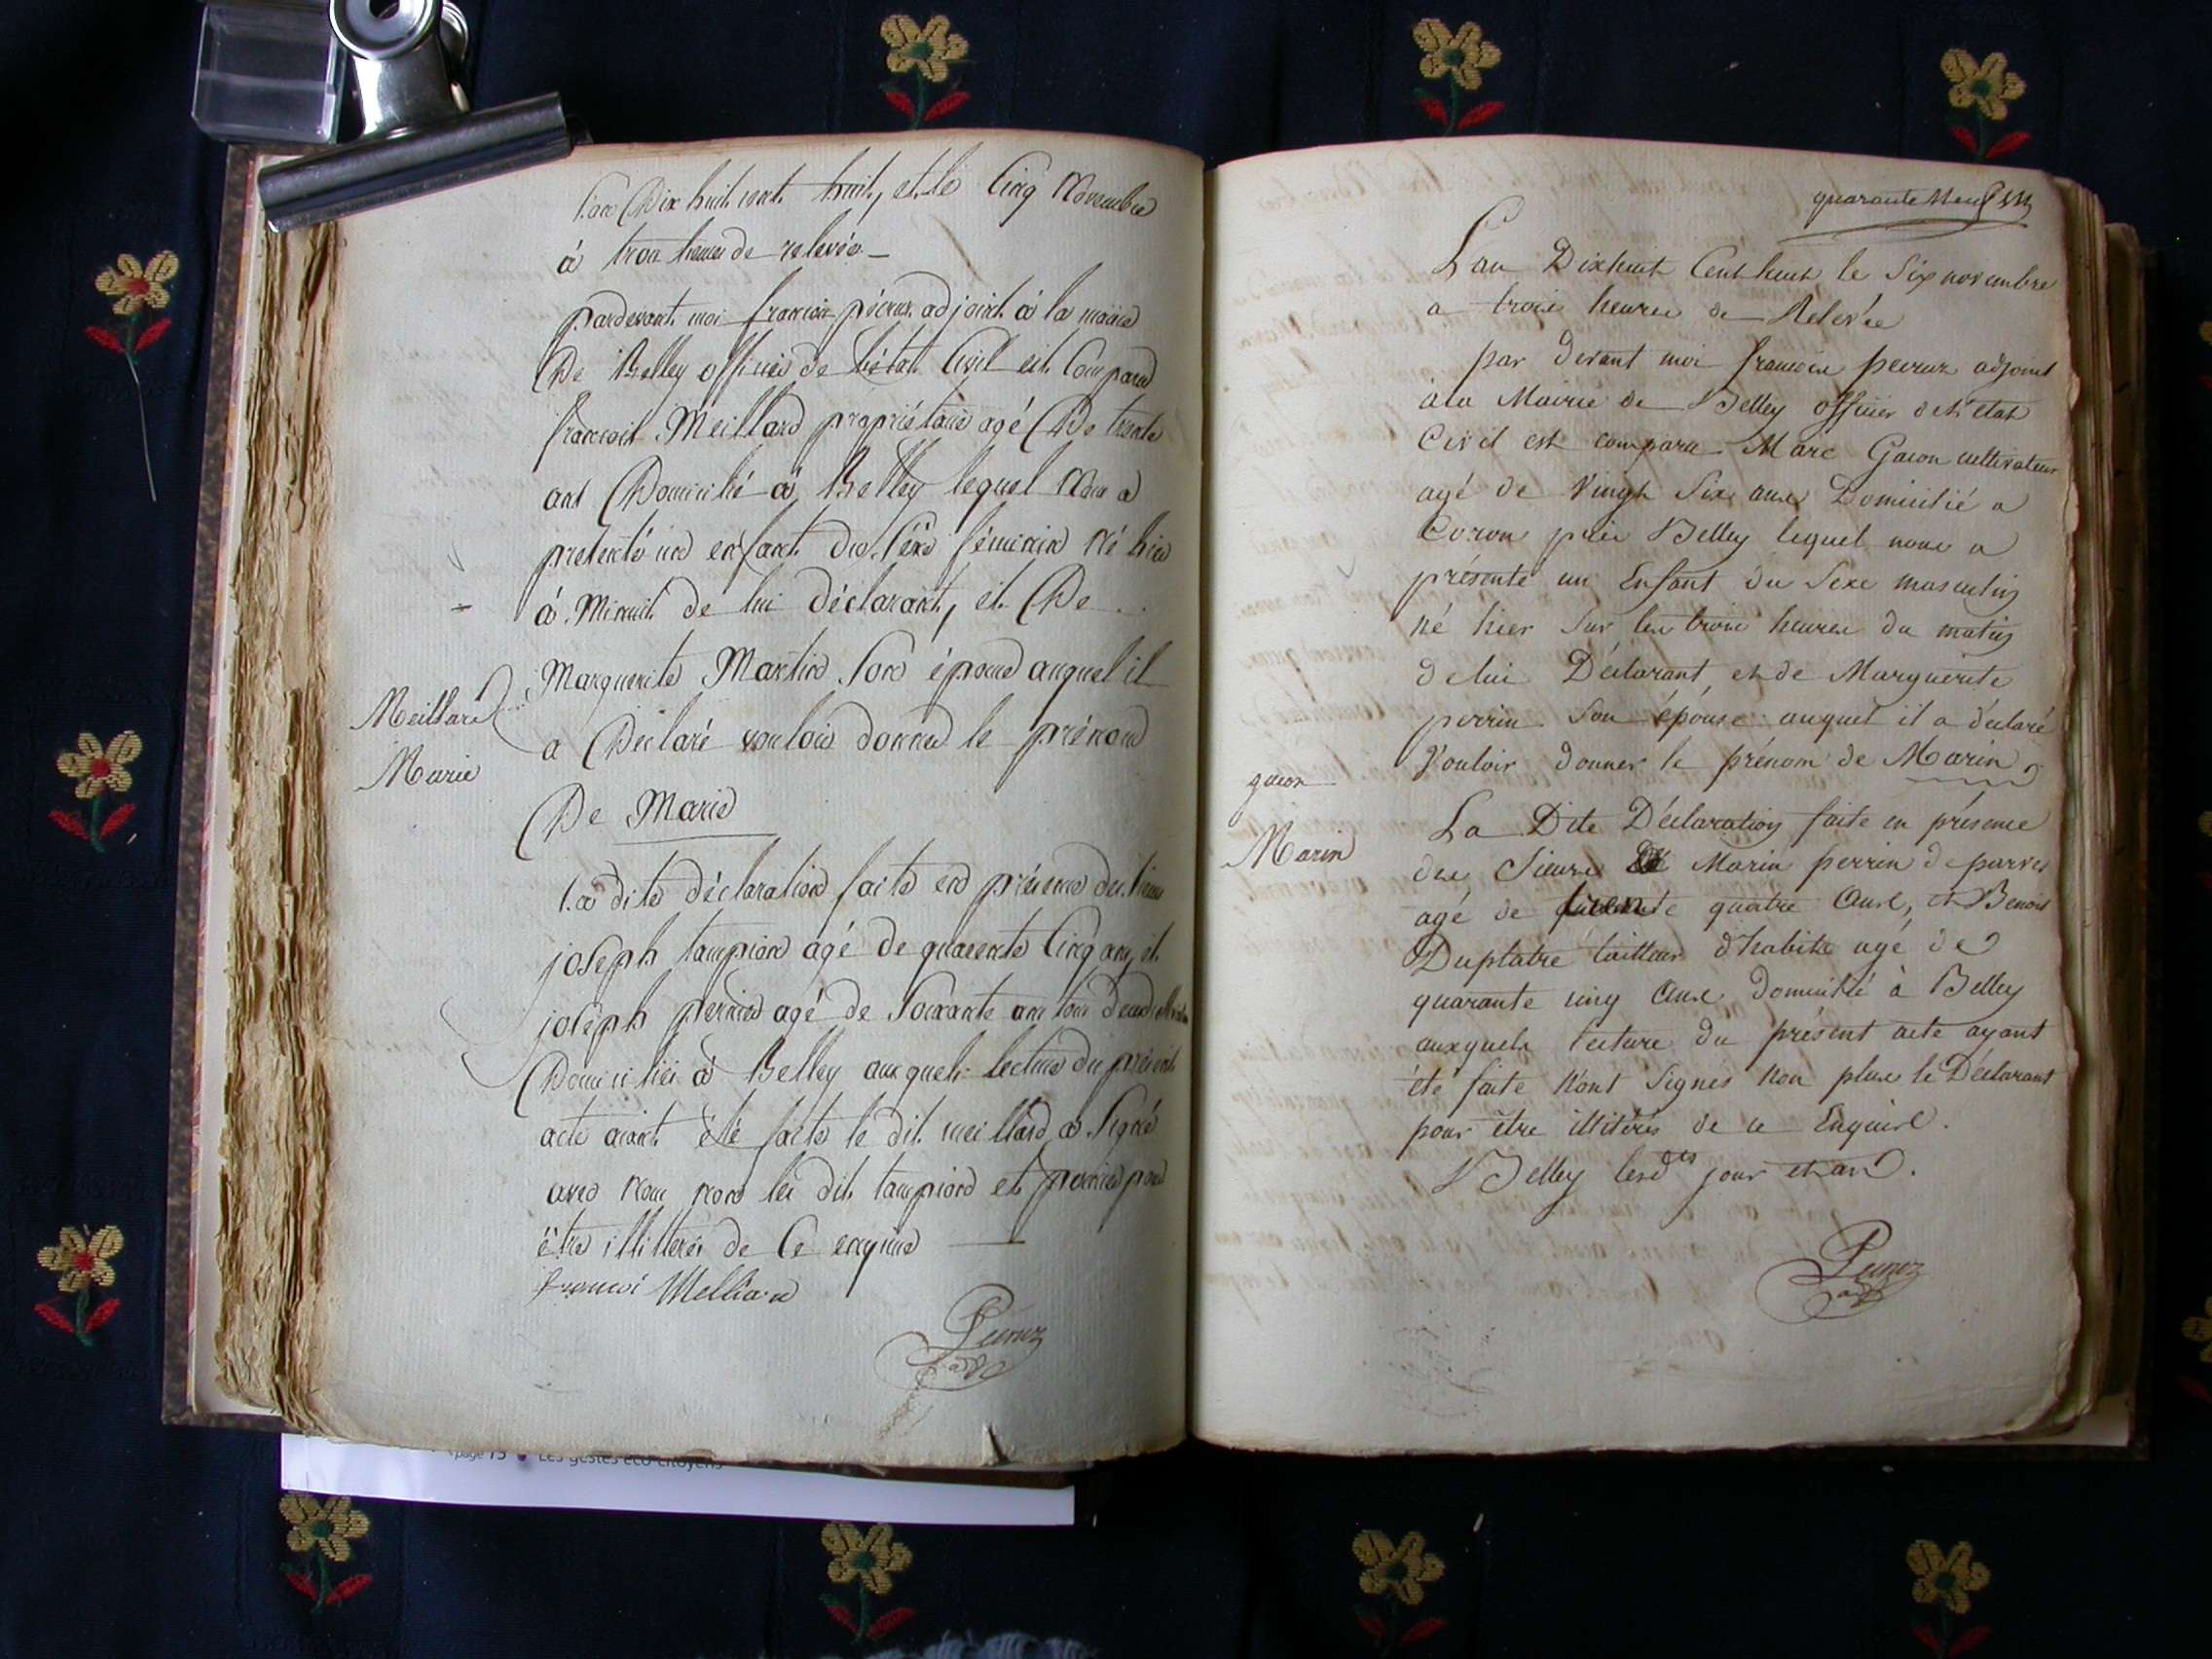 L'an Dix huit cent huit, et le Cinq Novembre
à trois heures de relevée
pardevant moi françois pécruz adjoint à la mairie
De Belley officier de L'état Civil est Comparu
françois Meillard propriétaire agé De trente
ans Domicilié à Belley lequel Nous a
présenté un enfant du Séxe féminin Né hier
à Minuit de lui déclarant, et De
Marguerite Martin Son épouse auquel il
a Déclaré vouloir donner le prénom
De Marie
Meillard
Marie
La dite déclaration faite en présence des Sieurs
joseph tampion agé de quarente Cinq ans, et
joseph perrier agé de Soixante ans tous deux
Domiciliés à Belley auxquels lecture du présent
acte aiant été faite le dit meillard a Signé
avec Nous Non les dits tampion et perrier pour
être illitterés de Ce enquis
francoi Melliard
Pecruz
adj
page 15 Les gestes éco-citoyens
quarante Neuf
L'an Dixhuit Cent huit le Six novembre
a trois heures de Relevée
par devant moi francois pecruz adjoint
à la Mairie de Belley officier de l'état
Civil est comparu Marc Gacon cultivateur
agé de Vingt Six ans Domicilié a
Coron près Belley lequel nous a
présenté un Enfant du Sexe masculin
né hier Sur les trois heures du matin
de lui Déclarant, et de Marguerite
perrin Son épouse auquel il a déclaré
Vouloir donner le prénom de Marin
gacon
Marin
La Dite Déclaration faite en présence
des Sieurs Marin perrin de parves
agé de quatre Ans, et Benoit
Duplatre tailleur d'habits agé de
quarante cinq Ans Domicilié à Belley
auxquels lecture du présent acte ayant
été faite N'ont Signés Non plus le Déclarant
pour être illitérés de ce Enquis.
Belley lesdts jour et an.
Pecruz
adj